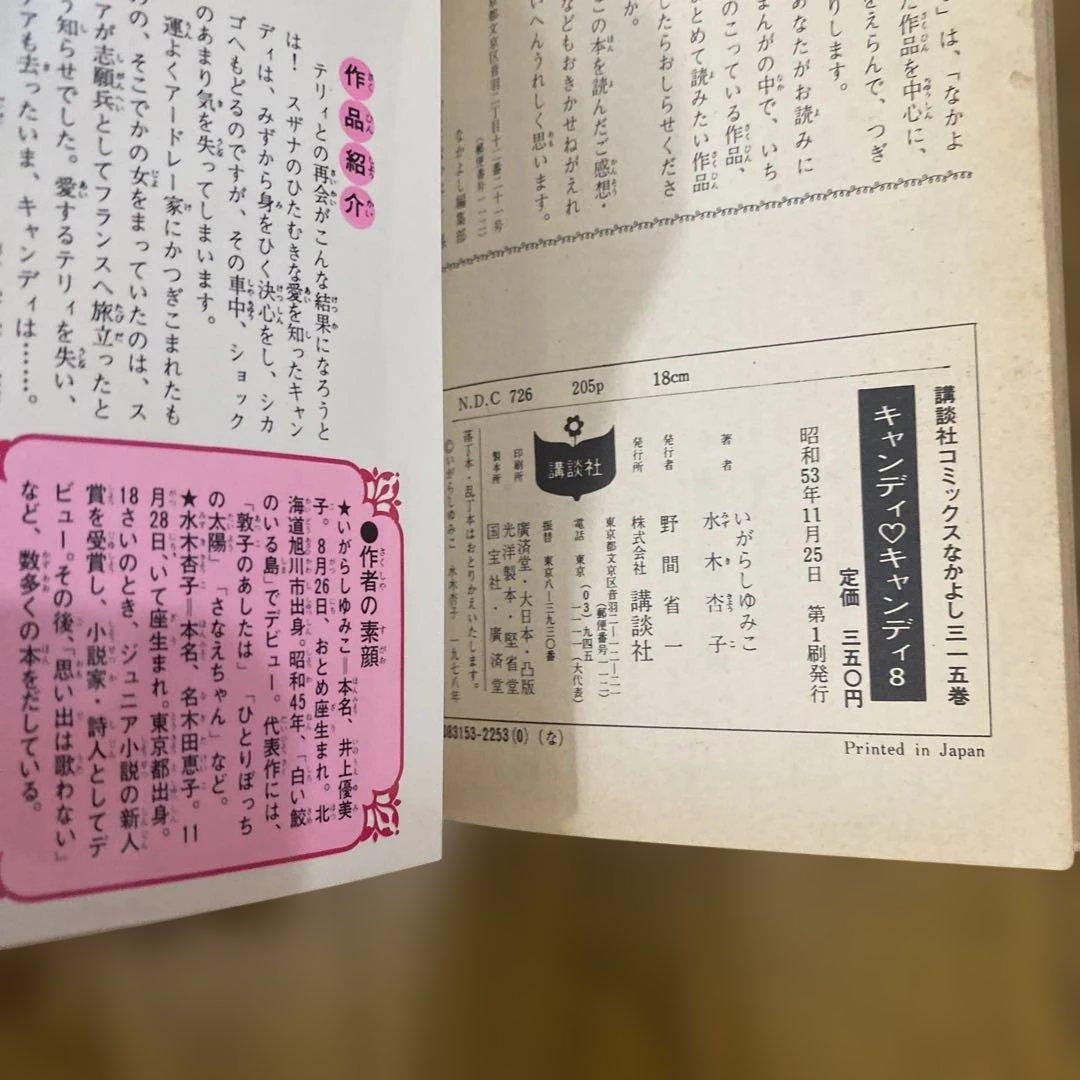 」は、「なかよ
た作品を中心に、
をえらんで、つぎ
りします。
あなたがお読みに
まんがの中で、いち
のこっている作品、
まとめて読みたい作品
したらおしらせくださ
か。
この本を読んだご感想・
などもおきかせねがえれ
いへんうれしく思います。
東京都文京区音羽二丁目十二番二十一号
(郵便番号一一二)
なかよし編集部
講談社コミックスなかよし三一五巻
キャンディ♡キャンディ8
定価 三五〇円
昭和53年11月25日 第1刷発行
著者
いがらしゆみこ
水木杏子
発行者
野間省一
発行所
株式会社 講談社
東京都文京区音羽二-一二-二一
(郵便番号一一二)
電話 東京(03)九四五
一一一一(大代表)
振替 東京八-三九三〇番
講談社
印刷所
廣済堂・大日本・凸版
製本所
光洋製本・堅省堂
国宝社・廣済堂
落丁本・乱丁本はおとりかえいたします。
©いがらしゆみこ 水木杏子 一九七八年
N.D.C 726 205p 18cm
083153-2253(0)(な)
Printed in Japan
作品紹介
テリィとの再会がこんな結果になろうと
は! スザナのひたむきな愛を知ったキャン
ディは、みずから身をひく決心をし、シカ
ゴへもどるのですが、その車中、ショック
のあまり気を失ってしまいます。
運よくアードレー家にかつぎこまれたも
のの、そこでかの女をまっていたのは、ス
アが志願兵としてフランスへ旅立ったと
う知らせでした。愛するテリィを失い、
アも去ったいま、キャンディは……。
●作者の素顔
★いがらしゆみこ＝本名、井上優美
子。8月26日、おとめ座生まれ。北
海道旭川市出身。昭和45年、「白い鮫
のいる島」でデビュー。代表作には、
「敦子のあしたは」「ひとりぼっち
の太陽」「さなえちゃん」など。
★水木杏子＝本名、名木田恵子。11
月28日、いて座生まれ。東京都出身。
18さいのとき、ジュニア小説の新人
賞を受賞し、小説家・詩人としてデ
ビュー。その後、「思い出は歌わない」
など、数多くの本をだしている。